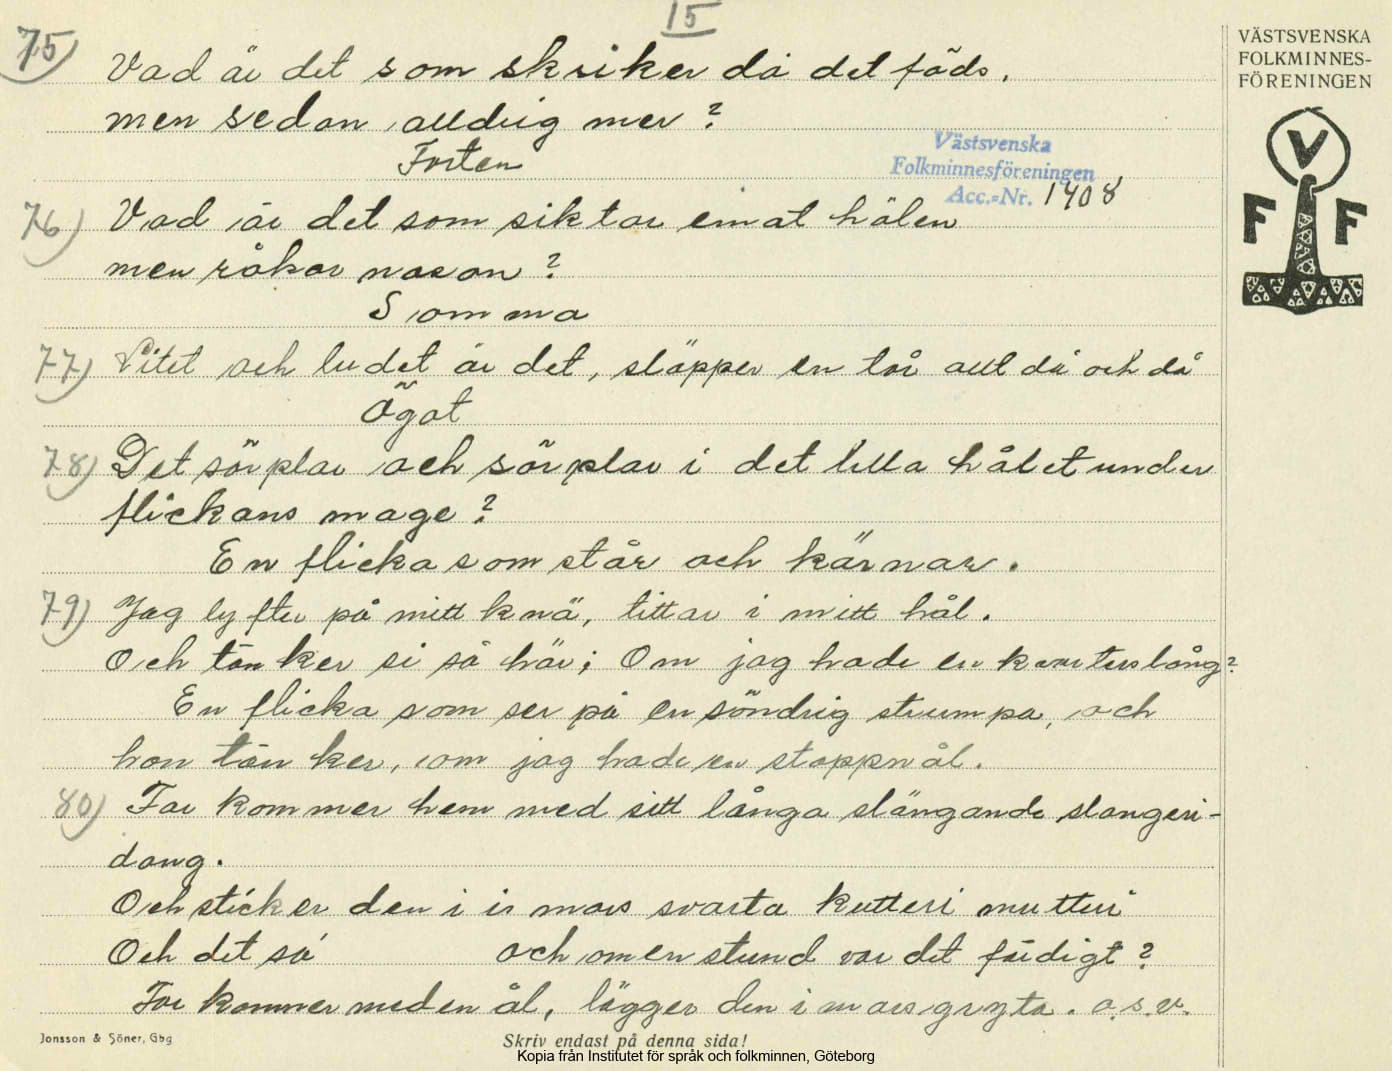 15
75) Vad är det som skriker då det föds,
men sedan alldrig mer?
Forten
Västsvenska
Folkminnesföreningen
Acc.-Nr. 1408
76) Vad är det som siktar emot hälen
men råkar nasan?
Somma
77) Litet och ludet är det, släpper en tår allt då och då
Ögat
78) Det sörplar och sörplar i det lilla hålet under
flickans mage?
En flicka som står och kärnar.
79) Jag lyfter på mitt knä, tittar i mitt hål.
Och tänker si så här; Om jag hade en kvarterslång?
En flicka som ser på en söndrig strumpa, och
hon tänker, om jag hade en stoppnål.
80) Far kommer hem med sitt långa slängande slangeri-
dang.
Och sticker den i mors svarta kutteri mutteri
Och det så och om en stund var det färdigt?
Far kommer med en ål, lägger den i mors gryta. o.s.v.
VÄSTSVENSKA
FOLKMINNES-
FÖRENINGEN
V
F F
Jonsson & Söner, Gbg
Skriv endast på denna sida!
Kopia från Institutet för språk och folkminnen, Göteborg